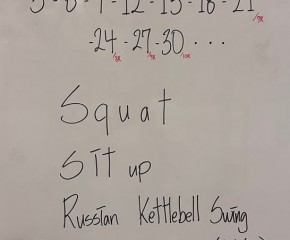 3 - 6 - 9 - 12 - 15 - 18 - 21
-24 - 27 - 30 . . .
Squat
Sit up
Russian Kettlebell Swing